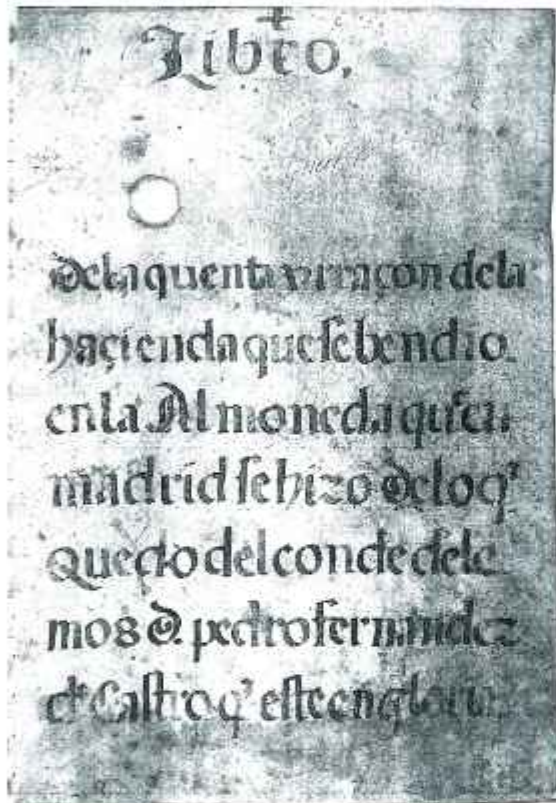 Libro,
dela quenta y rraçon dela
haçienda que se bendio
enla Almoneda que en
madrid se hizo deloq'
quedo del conde dele
mos d. pedro fernandez
de Castro q' este en gloria